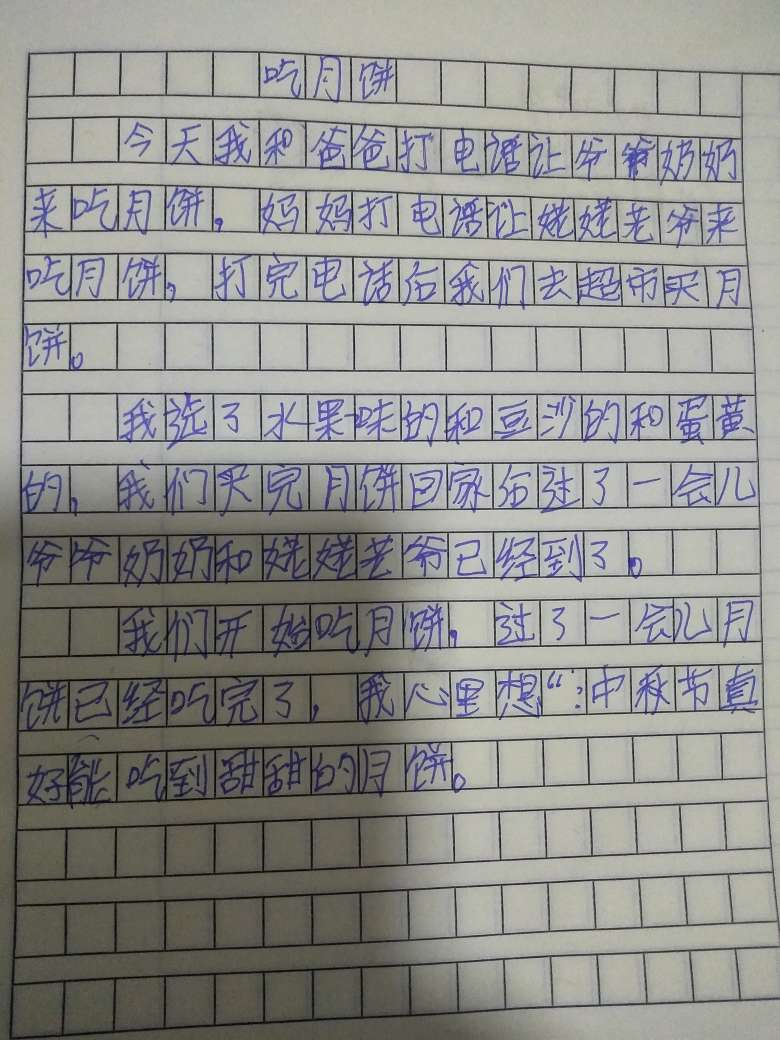 吃月饼
今天我和爸爸打电话让爷爷奶奶
来吃月饼,妈妈打电话让姥姥老爷来
吃月饼,打完电话后我们去超市买月
饼。
我选了水果味的和豆沙的和蛋黄
的,我们买完月饼回家后过了一会儿
爷爷奶奶和姥姥老爷已经到了。
我们开始吃月饼,过了一会儿月
饼已经吃完了,我心里想“:中秋节真
好能吃到甜甜的月饼。